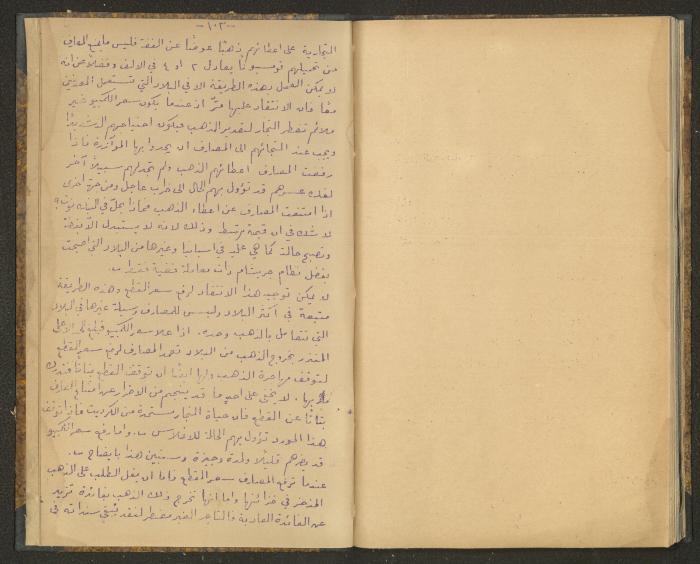 -١٠٣-
التجارية على اعطائهم ذهبًا عوضًا عن الفضة فليس ما يمنع المصارف
من تحميلهم قومسيونًا يعادل ٢ او ٤ في الالف وفضلاً عن انه
لا يمكن العمل بهذه الطريقة الا في البلاد التي تستعمل المعدنين
معًا فان الانتقاد عليها مرٌّ اذ عندما يكون سعر الكمبيو غير
ملائم تضطر التجار لتصدير الذهب فيكون احتياجهم اليه شديدًا
ويجب عند التجائهم الى المصارف ان يجدوا بها المؤازرة فاذا
رفضت المصارف اعطائهم الذهب ولم تجد لهم سبيلاً آخر
لفك عسرهم قد تؤول بهم الحال الى خراب عاجل ومن جهة اخرى
اذا امتنعت المصارف عن اعطاء الذهب فماذا يحل في البنك نوت
لا شك في ان قيمته تهبط وذلك لانه لا يستبدل الا بفضة
وتصبح حالته كما هي عليه في اسبانيا وغيرها من البلاد التي اصبحت
بفضل نظام جريشام ذات معاملة فضية فقط
لا يمكن توجيه هذا الانتقاد لرفع سعر القطع وهذه الطريقة
متبعة في اكثر البلاد وليس للمصارف وسيلة غيرها في البلاد
التي تتعامل بالذهب وحده. اذا علا سعر الكمبيو فبلغ الحد الاعلى
المنذر بخروج الذهب من البلاد تعمد المصارف لرفع سعر القطع
لتوقف مهاجرة الذهب ولها ايضًا ان توقف القطع بتاتًا فتدرك
مأربها. لا يخفى على احد ما قد ينجم من الاضرار عن امتناع المصارف
بتاتًا عن القطع فان حياة التجار مستمدة من الكرديت فاذا توقف
هذا المورد تؤول بهم الحالة للافلاس. واما رفع سعر الكمبيو
قد يضرهم قليلاً ولمدة وجيزة وسنبين هذا بايضاح
عندما ترفع المصارف سعر القطع فاما ان يقل الطلب على الذهب
المذخر في خزائنها واما انها تخرج ذلك الذهب بفائدة تزيد
عن الفائدة العادية فالتاجر الغير مضطر لنقد يبقي سنداته في